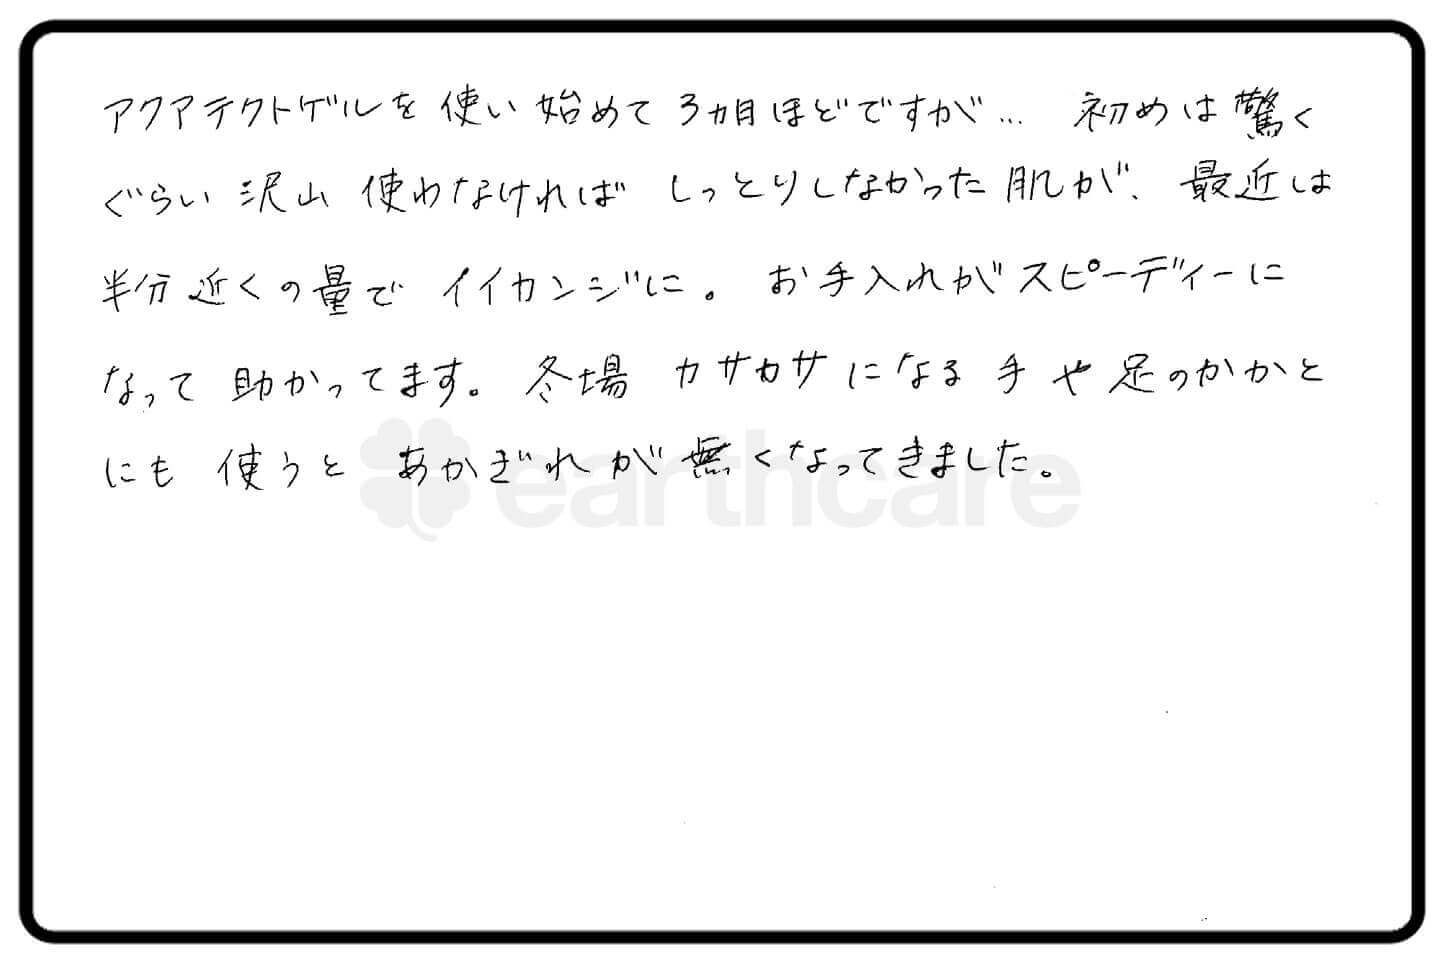 アクアテクトゲルを使い始めて3ヵ月ほどですが… 初めは驚く
ぐらい沢山使わなければしっとりしなかった肌が、最近は
半分近くの量でイイカンジに。お手入れがスピーディーに
なって助かってます。冬場カサカサになる手や足のかかと
にも使うとあかぎれが無くなってきました。
earthcare